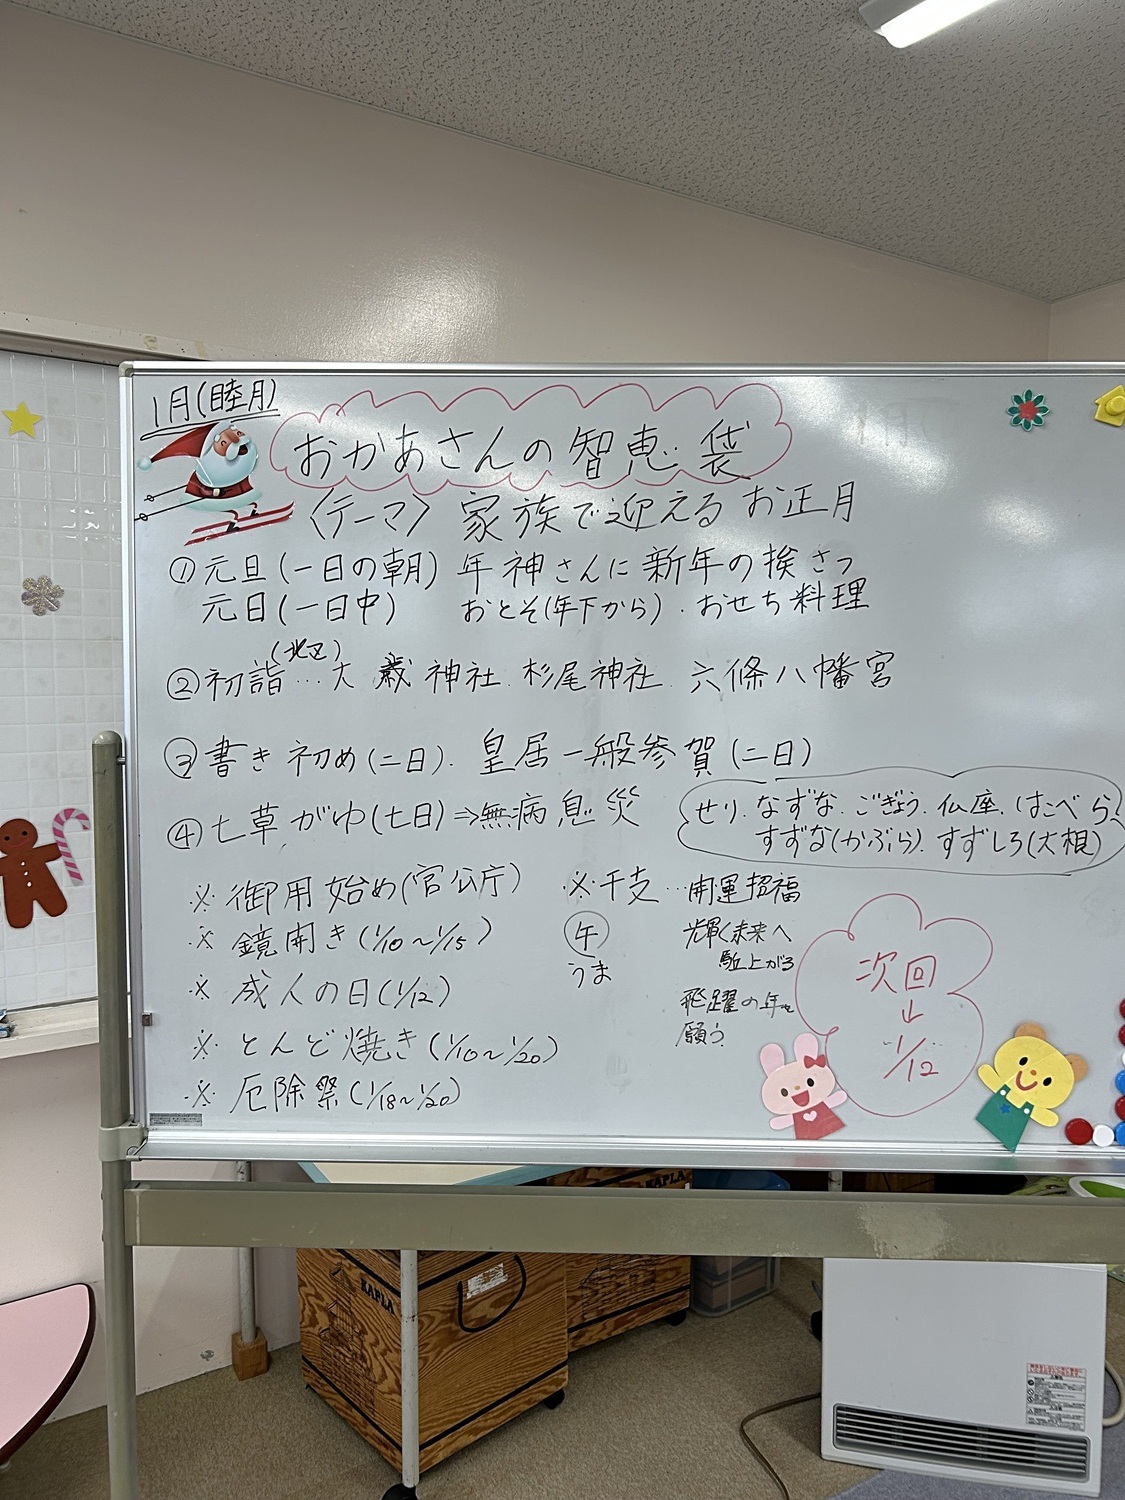 1月(睦月)
おかあさんの智恵袋
〈テーマ〉 家族で迎えるお正月
①元旦(一日の朝) 年神さんに新年の挨さつ
元日(一日中) おとそ(年下から)．おせち料理
(北区)
②初詣…大歳神社．杉尾神社．六條八幡宮
③書き初め(二日)．皇居一般参賀(二日)
④七草がゆ(七日)⇒無病息災
せり．なずな．ごぎょう．仏座．はこべら
すずな(かぶら)．すずしろ(大根)
※御用始め(官公庁)
※鏡開き(1/10～1/15)
※成人の日(1/12)
※とんど焼き(1/10～1/20)
※厄除祭(1/18～1/20)
※干支…開運招福
午
うま
輝く未来へ
駈上がる
飛躍の年を
願う
次回
↓
1/12
KAPLA
KAPLA